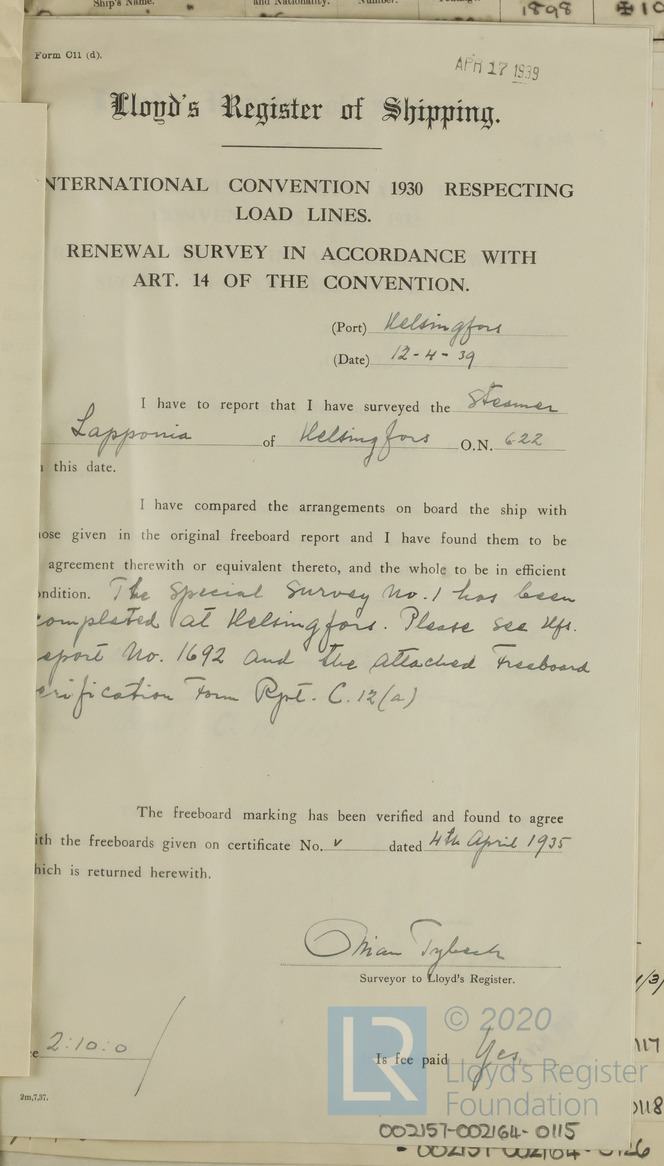 Ship's Name.
and Nationality.
Number.
1898
Form C11 (d).
APR 17 1939
Lloyd's Register of Shipping.
NTERNATIONAL CONVENTION 1930 RESPECTING
LOAD LINES.
RENEWAL SURVEY IN ACCORDANCE WITH
ART. 14 OF THE CONVENTION.
(Port) Helsingfors
(Date) 12-4-39
I have to report that I have surveyed the Steamer
Lapponia of Helsingfors O.N. 622
this date.
I have compared the arrangements on board the ship with
ose given in the original freeboard report and I have found them to be
agreement therewith or equivalent thereto, and the whole to be in efficient
ondition. The Special Survey No. 1 has been
completed at Helsingfors. Please see Hfs.
eport No. 1692 and the attached Freeboard
erification Form Rpt. C.12(a)
The freeboard marking has been verified and found to agree
ith the freeboards given on certificate No. v dated 4th April 1935
hich is returned herewith.
Surveyor to Lloyd's Register.
e 2:10:0
Is fee paid Yes.
2m,7,37.
LR
© 2020
Lloyd's Register
Foundation
117
0118
002157-002164-0115
002157-002164-0126